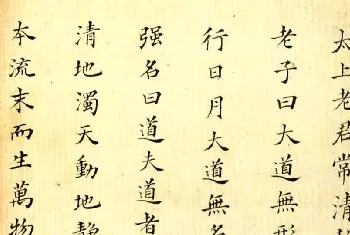 太上老君常清
老子曰大道無形
行日月大道無名
强名曰道夫道者
清地濁天動地靜
本流末而生萬物